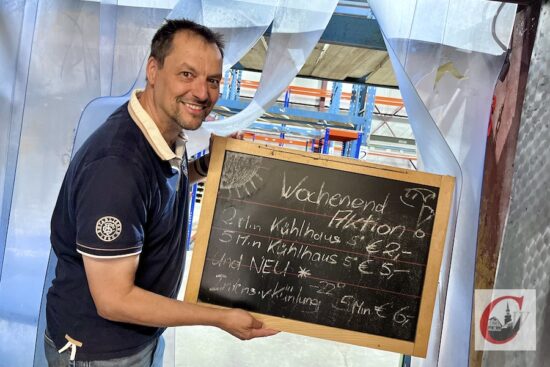 Wochenend
Aktion
2 Min Kühlhaus 5° € 2,-
5 Min Kühlhaus 5° € 5,-
und NEU *
-22°
Intensivkühlung 5 Min € 6,-